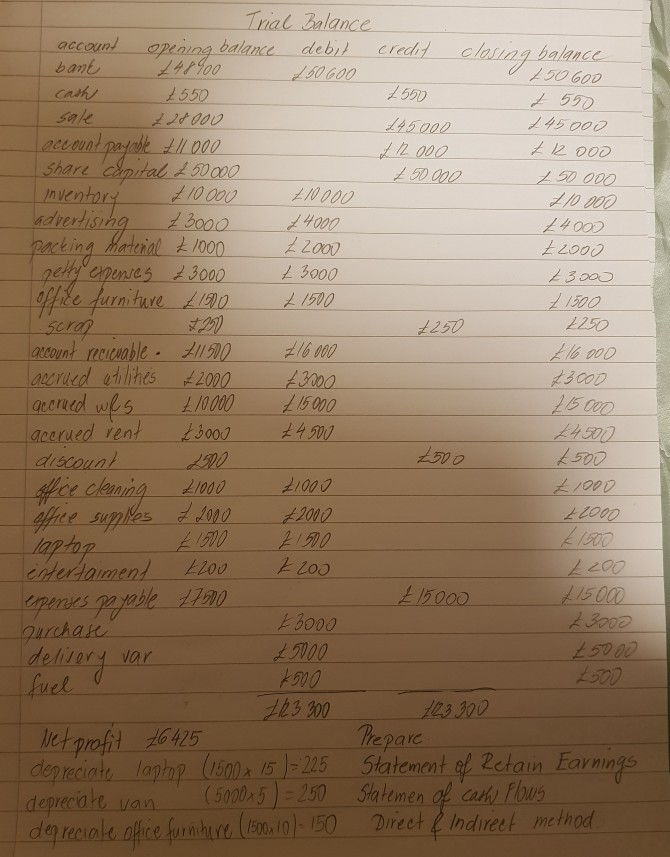 Trial Balance
account opening balance debit credit closing balance
bank £48900 £50600 £50600
cash £550 £550 £550
sale £28000 £45000 £45000
account payable £11000 £12000 £12000
share capital £50000 £50000 £50000
inventory £10000 £10000 £10000
advertising £3000 £4000 £4000
packing material £1000 £2000 £2000
petty expenses £3000 £3000 £3000
office furniture £1500 £1500 £1500
scrap £250 £250 £250
account recievable. £11500 £16000 £16000
accrued utilities £2000 £3000 £3000
accrued w&s £10000 £15000 £15000
accrued rent £3000 £4500 £4500
discount £500 £500 £500
office cleaning £1000 £1000 £1000
office supplies £2000 £2000 £2000
laptop £1500 £1500 £1500
entertaiment £200 £200 £200
expenses payable £7500 £15000 £15000
purchase £3000 £3000
delivery var £5000 £5000
fuel £500 £500
£123300 £123300
Net profit £6425 Prepare
depreciate laptop (1500x15)=225 Statement of Retain Earnings
depreciate van (5000x5)=250 Statemen of cash Flows
depreciate office furniture (1500x10)=150 Direct & Indirect method